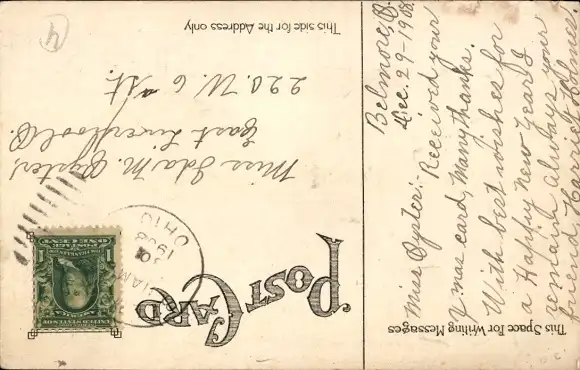 POST CARD
This Space For Writing Messages
This side for the Address only
UNITED STATES OF AMERICA
POSTAGE
ONE CENT
1 1
OHIO
1908
AM
Miss Ida M. Oyster,
East Liverpool O.
220. W. 6 St.
4
Belmore, O.
Dec. 29-1908.
Miss Oyster:- Received your
Xmas card, Many thanks.
With best wishes for
a Happy New Year I
remain always your
friend, Harriet Holmes.